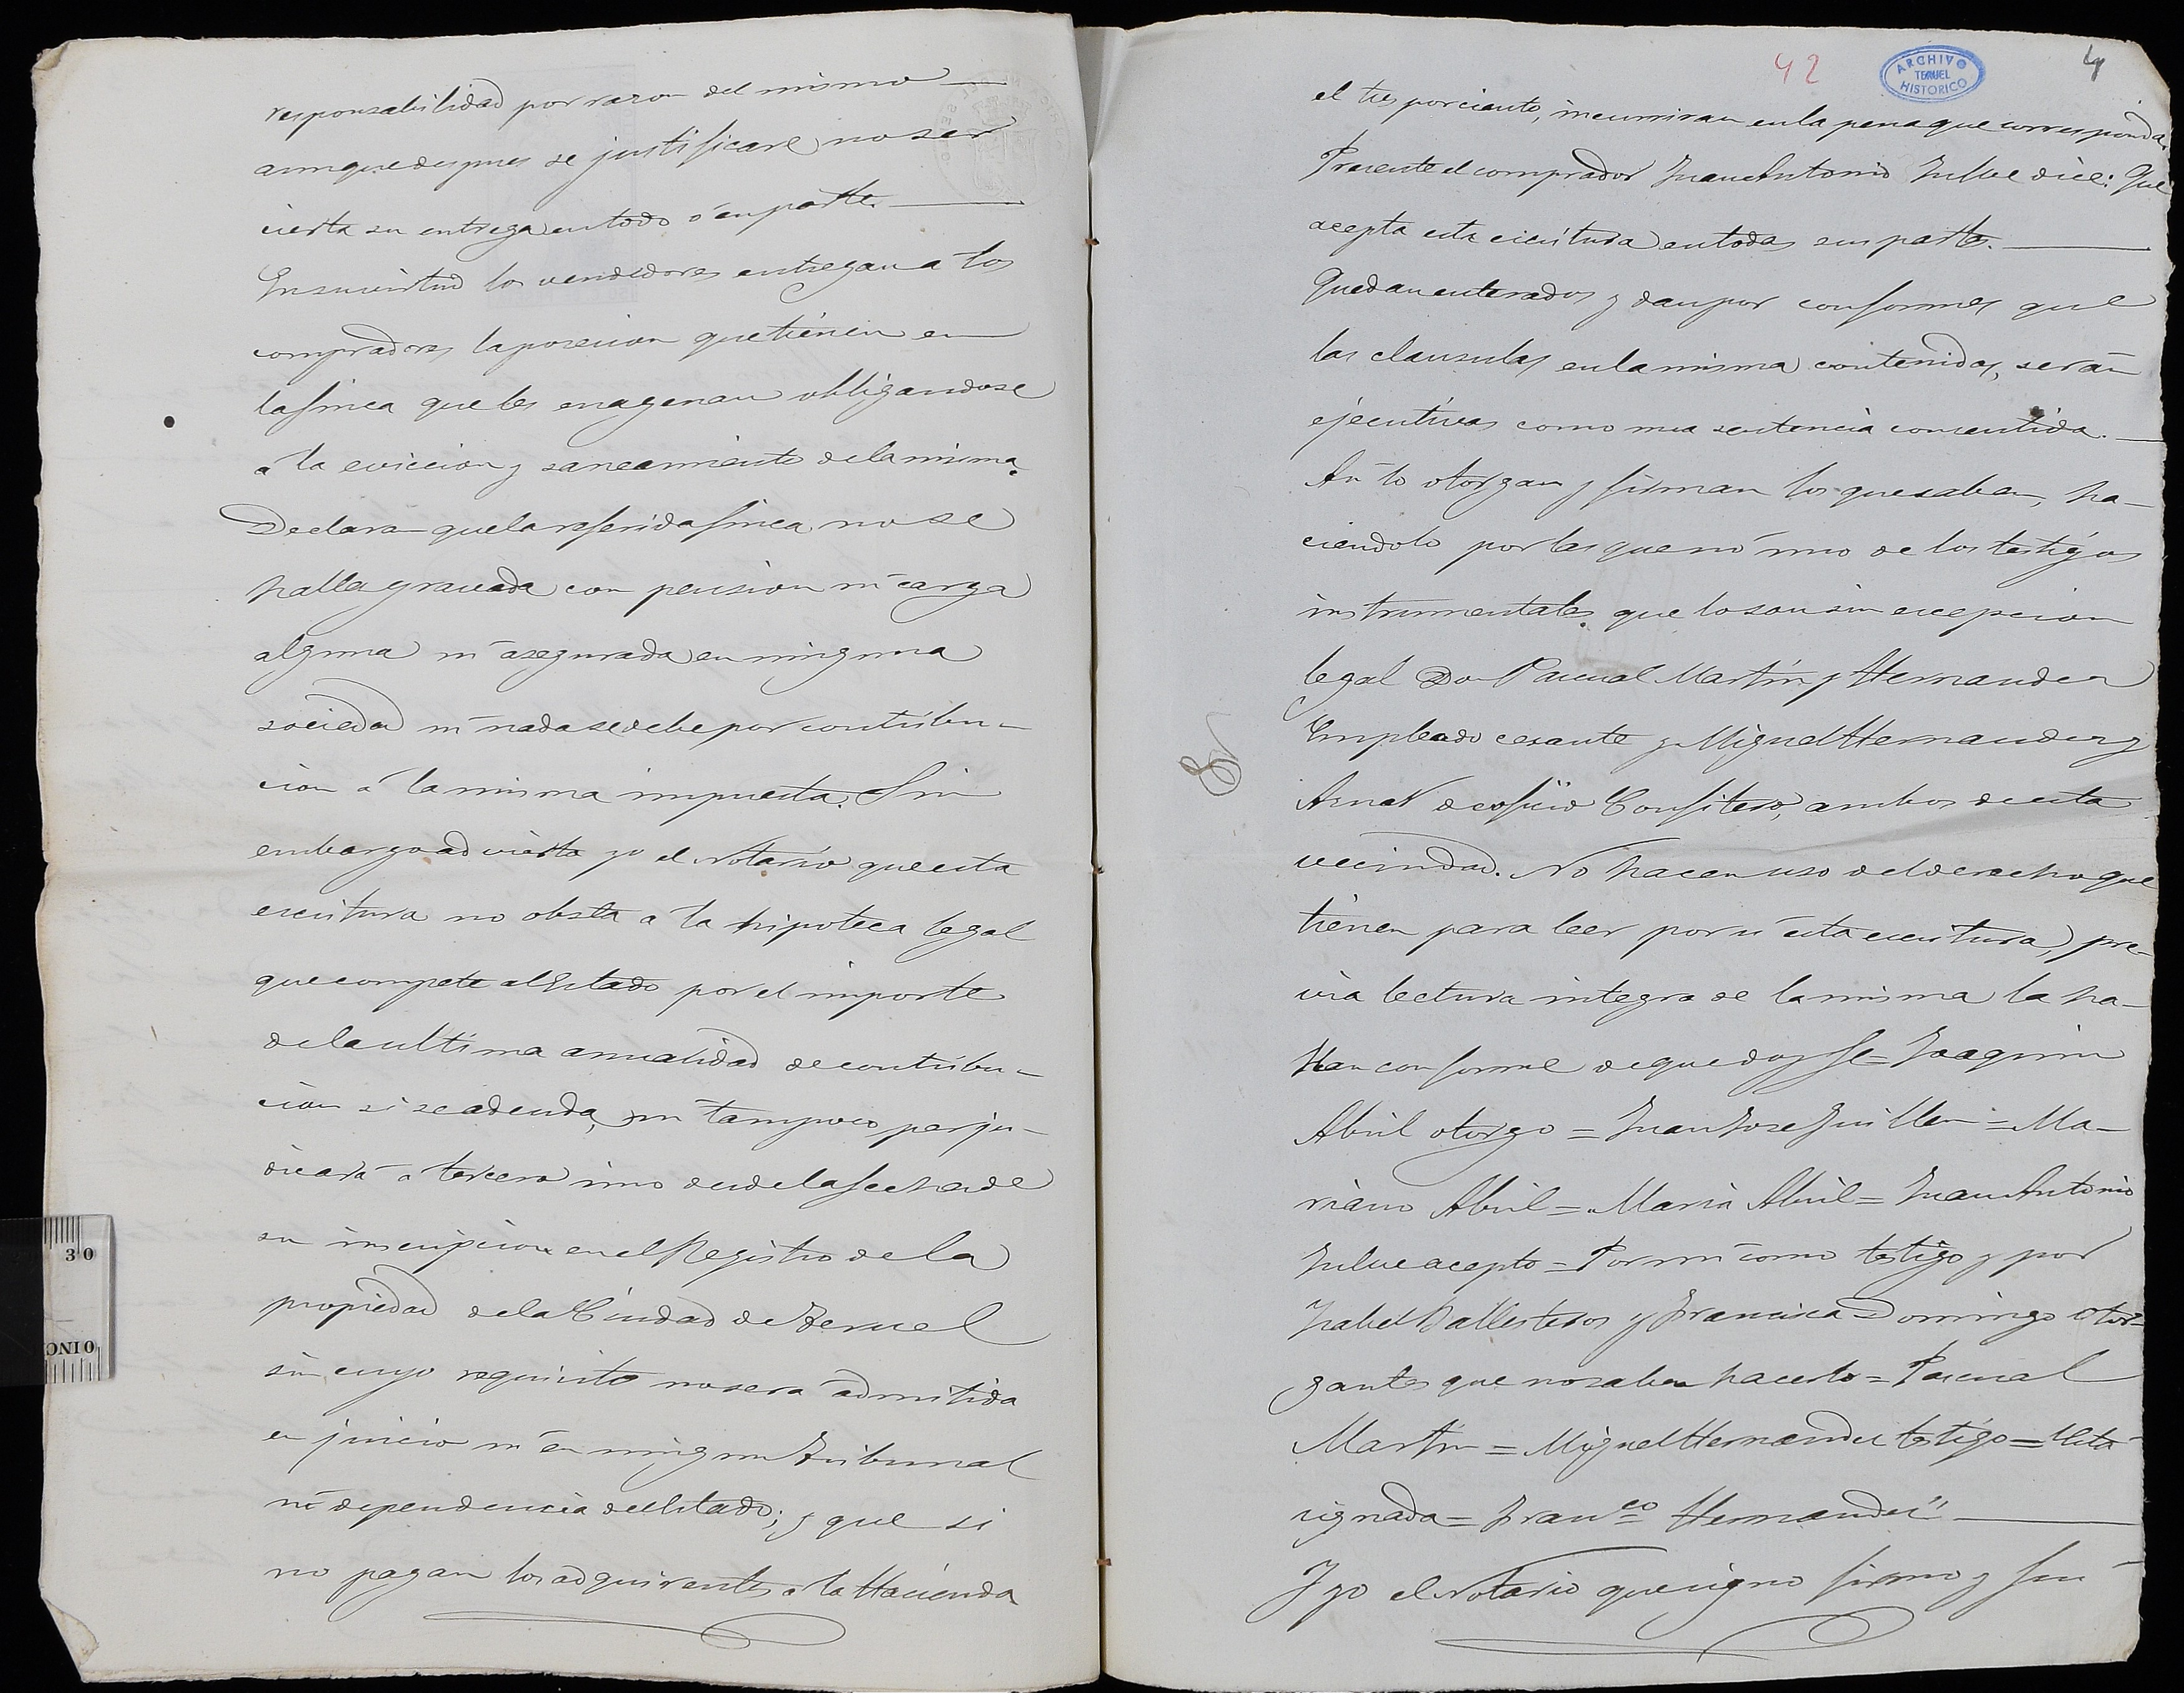 responsabilidad por razon del mismo
aunque despues se justificare no ser
cierta su entrega en todo ó en parte.
En su virtud los vendedores entregan a los
compradores la posecion que tienen en
la finca que les enagenan obligandose
á la eviccion y saneamiento de la misma.
Declaran que la referida finca no se
halla gravada con pension ni carga
alguna ni asegurada en ninguna
sociedad ni nada se debe por contribu-
cion á la misma impuesta. Sin
embargo advierto yo el Notario que esta
escritura no obsta a la hipoteca legal
que compete al Estado por el importe
de la ultima anualidad de contribu-
cion si se adeuda, ni tampoco perju-
dicará a tercero sino desde la fecha de
su inscripcion en el Registro de la
propiedad de la Ciudad de Teruel
sin cuyo requisito no sera admitida
en juicio ni en ningun Tribunal
ni dependencia del Estado; y que si
no pagan los adquirentes a la Hacienda
42
ARCHIVO
TERUEL
HISTORICO
4
el tres por ciento, incurriran en la pena que corresponda.
Presente el comprador Juan Antonio Julve dice: Que
acepta esta escritura en todas sus partes.
Quedan enterados y dan por conformes que
las clausulas en la misma contenidas, serán
ejecutivas como una sentencia consentida.
Asi lo otorgan y firman los que saben, ha-
ciendolo por las que nó uno de los testigos
instrumentales que lo son sin excepcion
legal Don Pascual Martin y Hernandez
Empleado cesante y Miguel Hernandez y
Asnar de oficio Confitero, ambos de esta
vecindad. No hacen uso del derecho que
tienen para leer por si esta escritura, pre-
via lectura integra de la misma la ha-
llan conforme de que doy fe = Joaquin
Abril otorgo = Juan Jose Guillen = Ma-
riano Abril = Maria Abril = Juan Antonio
Julve acepto = Por mi como testigo y por
Isabel Ballesteros y Francisca Domingo otor-
gantes que no saben hacerlo = Pascual
Martin = Miguel Hernandez testigo = Está
signada = Franco Hernandez"
Y yo el Notario que signo firmo y fuí
30
CINCO